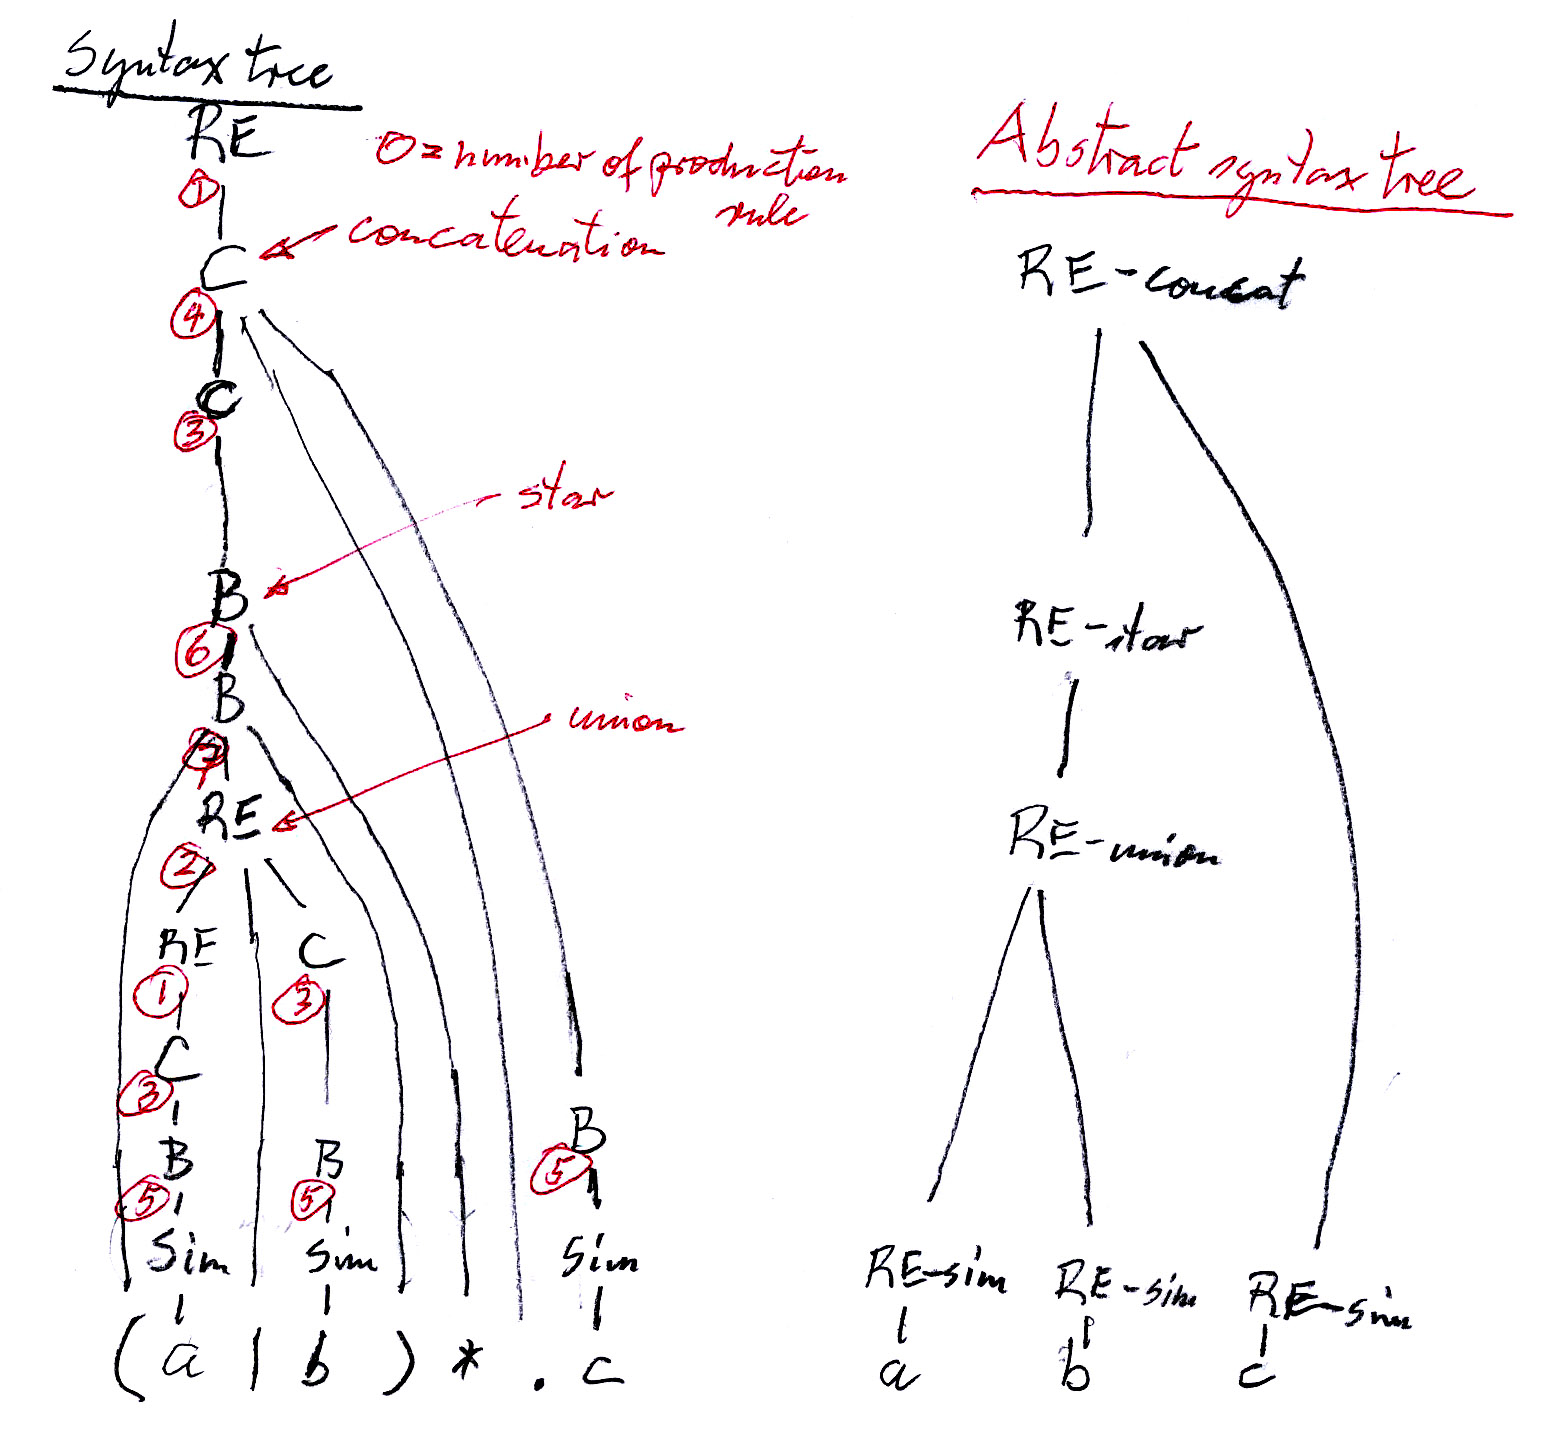 Syntax tree
RE
O = number of production
rule
①
concatenation
C
④
C
③
star
B
⑥
B
union
RE
②
RE
C
①
③
C
③
B
B
B
⑤
⑤
⑤
Sim
Sim
Sim
( a | b ) * . c
Abstract syntax tree
RE-concat
RE-star
RE-union
RE-sim
RE-sim
RE-sim
a
b
c